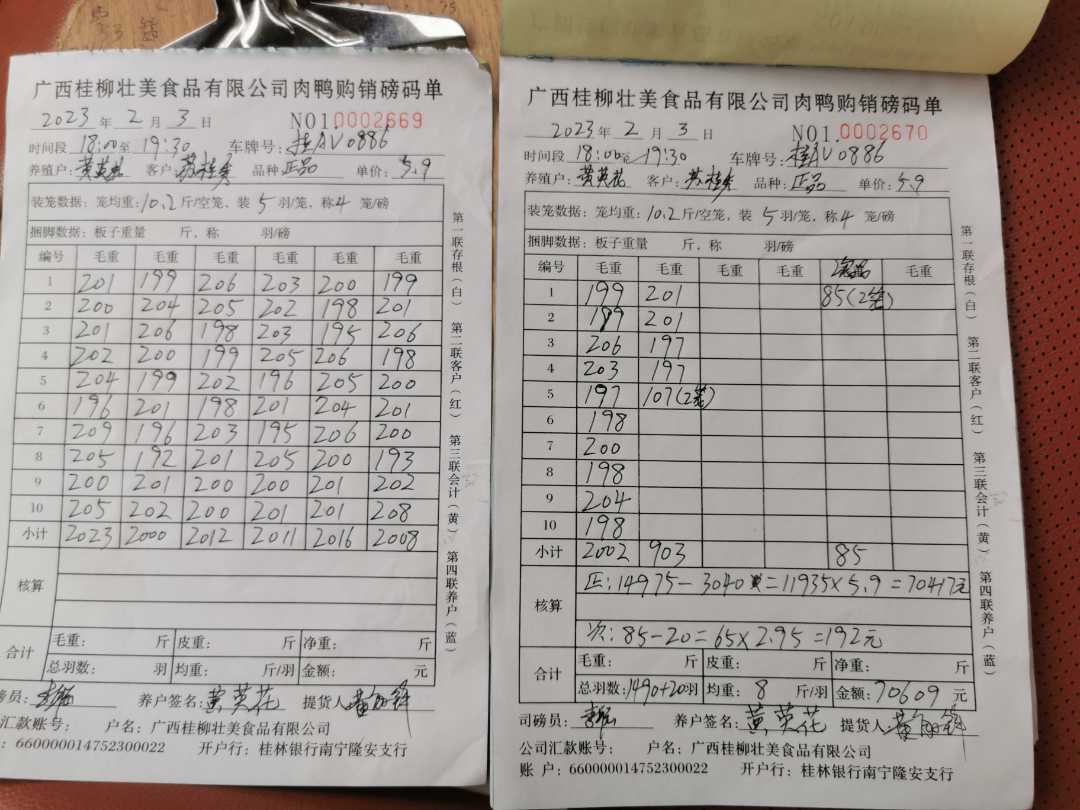 广西桂柳壮美食品有限公司肉鸭购销磅码单
2023 年 2 月 3 日 NO1.0002669
时间段 18:00至 19:30 车牌号: 桂AV0886
养殖户: 黄英花 客户: 苏桂秀 品种 正品 单价: 5.9
装笼数据: 笼均重: 10.2 斤/空笼, 装 5 羽/笼, 称 4 笼/磅
捆脚数据: 板子重量 斤, 称 羽/磅
编号 毛重 毛重 毛重 毛重 毛重 毛重
1 201 199 206 203 200 199
2 200 204 205 202 198 201
3 201 206 198 203 195 206
4 202 200 199 205 206 198
5 204 199 202 196 205 200
6 196 201 198 201 204 201
7 209 196 203 195 206 200
8 205 192 201 205 200 193
9 200 201 200 200 201 202
10 205 202 200 201 201 208
小计 2023 2000 2012 2011 2016 2008
核算
合计 毛重: 斤 皮重: 斤 净重: 斤
总羽数: 羽 均重: 斤/羽 金额: 元
磅员: 养户签名: 黄英花 提货人
汇款账号: 户名: 广西桂柳壮美食品有限公司
: 660000014752300022 开户行: 桂林银行南宁隆安支行
第一联存根(白) 第二联客户(红) 第三联会计(黄) 第四联养户(蓝)
广西桂柳壮美食品有限公司肉鸭购销磅码单
2023 年 2 月 3 日 NO1.0002670
时间段 18:00至 19:30 车牌号: 桂AV0886
养殖户: 黄英花 客户: 苏桂秀 品种: 正品 单价: 5.9
装笼数据: 笼均重: 10.2 斤/空笼, 装 5 羽/笼, 称 4 笼/磅
捆脚数据: 板子重量 斤, 称 羽/磅
编号 毛重 毛重 毛重 毛重 次品 毛重
1 199 201 85(2笼)
2 199 201
3 206 197
4 203 197
5 197 107(2笼)
6 198
7 200
8 198
9 204
10 198
小计 2002 903 85
核算 正: 14975-3040=11935×5.9=70417元
次: 85-20=65×2.95=192元
合计 毛重: 斤 皮重: 斤 净重: 斤
总羽数: 1490+20羽 均重: 8 斤/羽 金额: 70609 元
司磅员: 养户签名: 黄英花 提货人
公司汇款账号: 户名: 广西桂柳壮美食品有限公司
账 户: 660000014752300022 开户行: 桂林银行南宁隆安支行
第一联存根(白) 第二联客户(红) 第三联会计(黄) 第四联养户(蓝)